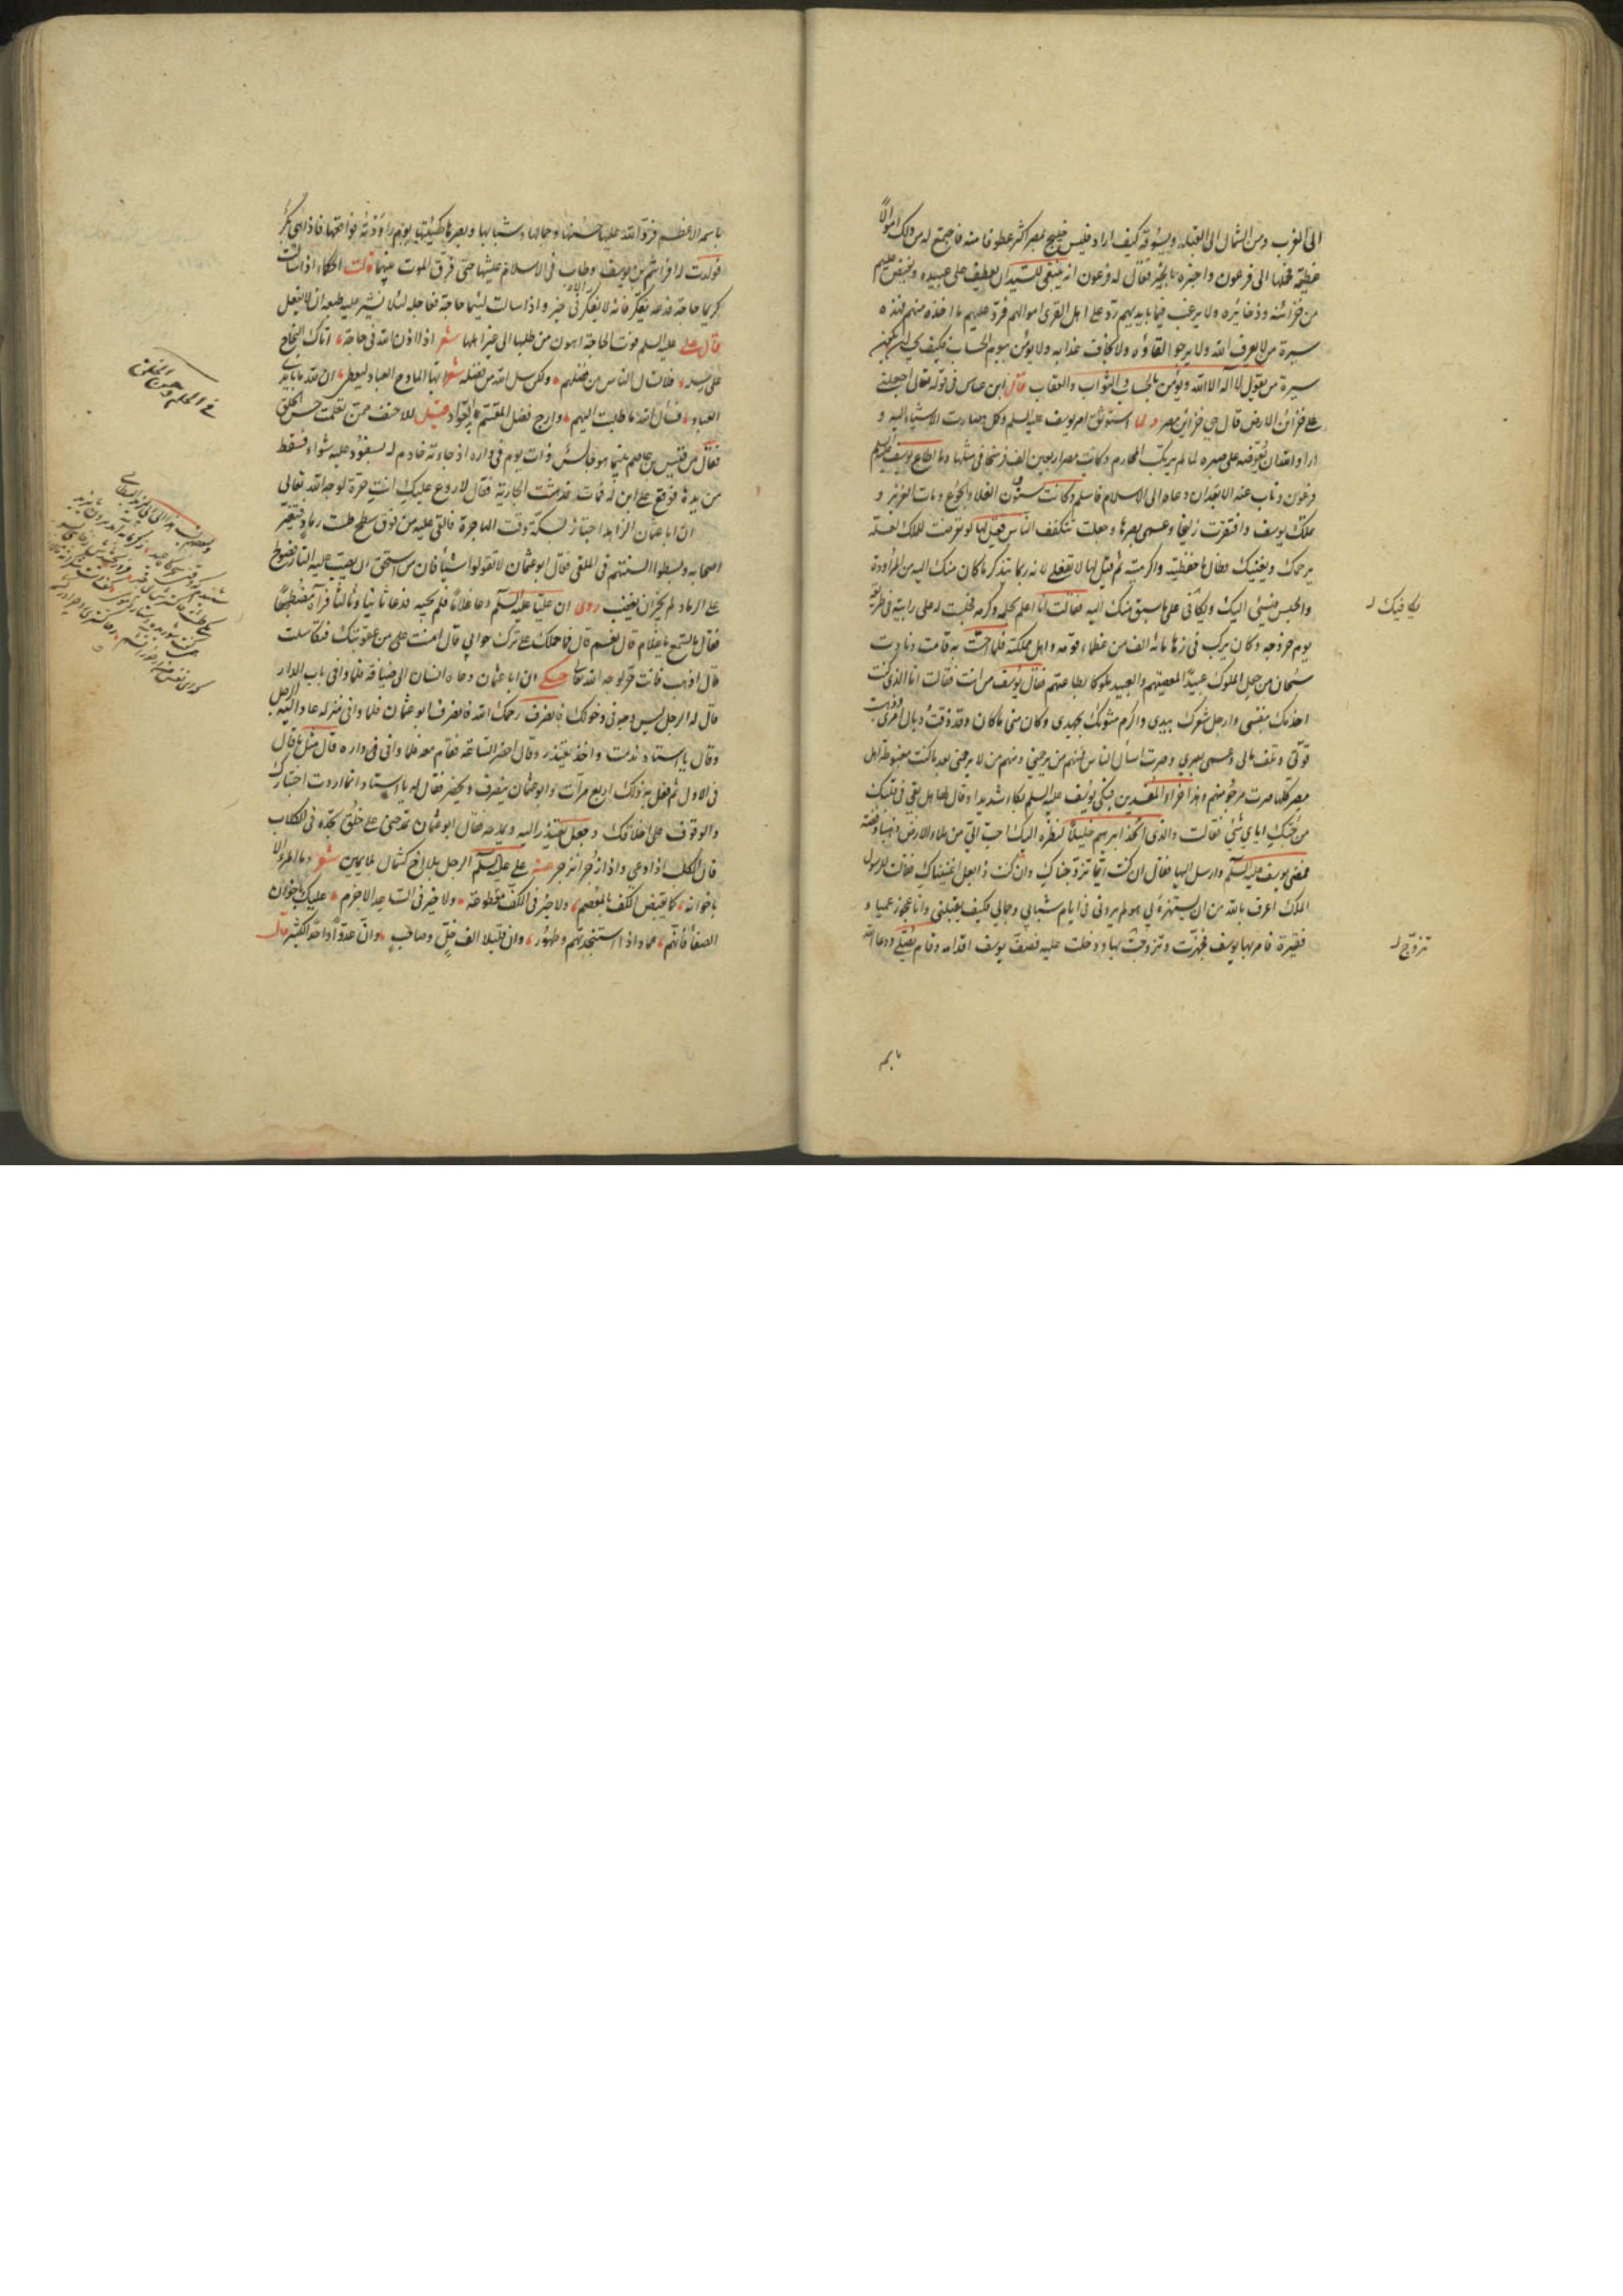 الى الغرب ومن الشمال الى القبلة ويسوقه كيف اراد فليس خليج بمصر اكثر عطوفا منه فاجتمع له من ذلك اموالا
عظيمة فحملها الى فرعون واخبره بالخبر فقال له فرعون انه ينبغي للسيد ان يعطف على عبيده ويفيض عليهم
من خزائنه وذخائره ولا يرغب فيما بايديهم رد على اهل القرى اموالهم فرد عليهم ما اخذه منهم فهذه
سيرة من لا يعرف الله ولا يرجو لقاؤه ولا يخاف عذابه ولا يؤمن بيوم الحساب فكيف يجب ان تكون
سيرة من يقول لا اله الا الله ويؤمن بالحساب والثواب والعقاب قال ابن عباس في قوله تعالى اجعلني
على خزائن الارض قال هي خزائن مصر ولما استوثق امر يوسف عليه السلم وكمل وصارت الاشياء اليه و
اراد الله ان يعوضه على صبره لما لم يرتكب المحارم وكانت مصر اربعين الف فرسخا في مثلها وما اطاع يوسف عليه السلم
فرعون وناب عنه الا بعد ان دعاه الى الاسلام فاسلم وكانت سنون الغلا والجوع ومات العزيز و
ملك يوسف وافتقرت زليخا وعمى بصرها وجعلت تتكفف الناس فقيل لها لو تعرضت للملك لعله
يرحمك ويغنيك فطال ما حفظتيه واكرمتيه ثم قيل لها لا تفعلي لانه ربما يتذكر ما كان منك اليه من المراودة
والحبس فيسئ اليك ويكافئ على ما سبق منك اليه فقالت انا اعلم بحلمه وكرمه فجلست له على رابية في طريقه
يوم خروجه وكان يركب في زهاء مائة الف من عظماء قومه واهل مملكته فلما احست به قامت ونادت
سبحان من جعل الملوك عبيدا بمعصيتهم والعبيد ملوكا بطاعتهم فقال يوسف من انت فقالت انا الذي كنت
اخدمك بنفسي وارجل شعرك بيدي واكرم مثواك بجهدي وكان مني ما كان وقد ذقت وبال امري وذهبت
قوتي وتلف مالي وعمى بصري وصرت اسأل الناس فمنهم من يرحمني ومنهم من لا يرحمني بعد ما كنت مغبوطة اهل
مصر كلها صرت مرحومتهم وهذا جزاء المفسدين فبكى يوسف عليه السلم بكاء شديدا وقال لها هل بقي في قلبك
من حبك اياي شئ فقالت والذي اتخذ ابراهيم خليلا لنظرة اليك احب الي من ملاء الارض ذهبا وفضة
فمضى يوسف عليه السلم وارسل اليها فقال ان كنت ايما تزوجناك وان كنت ذا بعل اغنيناك فقالت لرسول
الملك اعرف بالله من ان يستهزئ بي هو لم يردني في ايام شبابي وجمالي فكيف يقبلني وانا عجوز عمياء و
فقيرة فامر بها يوسف فجهزت وتزوجت بها ودخلت عليه فصف يوسف اقدامه وقام يصلي ودعا الله
يكافيك
تزوج
باسمه
باسمه الاعظم فرد الله عليها حسنها وجمالها وشبابها وبصرها كهيئتها يوم راودته فواقعها فاذا هي بكر
فولدت له افراثيم بن يوسف وطاب في الاسلام عيشهما حتى فرق الموت بينهما قالت الحكماء اذا سألت
كريما حاجة فدعه يفكر فانه لا يفكر الا في خير واذا سالت لئيما حاجة فعاجله لئلا يشير عليه طبعه ان لا يفعل
قال علي عليه السلم فوت الحاجة اهون من طلبها الى غير اهلها شعر اذا اذن الله في حاجة اتاك النجاح
على رسله فلا تسأل الناس من فضلهم ولكن سل الله من فضله شعر ايها المادح العباد ليعطى ان لله ما بايدي
العباد فسأل الله ما طلبت اليهم وارج فضل المقسم العواد قيل للاحنف ممن تعلمت حسن الخلق
فقال من قيس بن عاصم بينما هو جالس ذات يوم في داره اذ جاءته خادم له بسفود عليه شواء فسقط
من يدها فوقع على ابن له فمات فدهشت الجارية فقال لا روع عليك انت حرة لوجه الله تعالى
ان ابا عثمان الزاهد اجتاز بسكة وقت الهاجرة فالقى عليه من فوق سطح طست رماد فتغير
اصحابه وبسطوا السنتهم في الملقي فقال ابو عثمان لا تقولوا شيئا فان من استحق ان يصب عليه النار فصولح
على الرماد لم يجز ان يغضب روى ان عليا عليه السلم دعا غلاما فلم يجبه فدعا ثانيا وثالثا فرآه مضطجعا
فقال ما تسمع يا غلام قال نعم قال فما حملك على ترك جوابي قال امنت على من عقوبتك فتكاسلت
قال اذهب فانت حر لوجه الله تعالى حكي ان ابا عثمان دعاه انسان الى ضيافة فلما وافى باب الدار
قال له الرجل ليس وجه في دخولك فانصرف رحمك الله فانصرف ابو عثمان فلما وافى منزله عاد اليه الرجل
وقال يا استاد ندمت واخذ يعتذر وقال احضر الساعة فقام معه فلما وافى داره قال مثل ما قال
في الاول ثم فعل به ذلك اربع مرات وابو عثمان ينصرف ويحضر فقال له يا استاد انما اردت اختبارك
والوقوف على اخلاقك وجعل يعتذر اليه ويمدحه فقال ابو عثمان تمدحني على خلق تجده في الكلاب
فان الكلب اذا دعي واذا زجر انزجر عن علي عليه السلم الرجل بلا اخ كشمال بلا يمين شعر وما المرء الا
باخوانه كما يقبض الكف بالمعصم ولا خير في الكف مقطوعة ولا خير في الساعد الاجذم عليك باخوان
الصفا فانهم عماد اذا استنجدتهم وظهور وان قليلا الف خل وصاحب وان عدوا واحدا لكثير قال
في الحلم وحسن الخلق